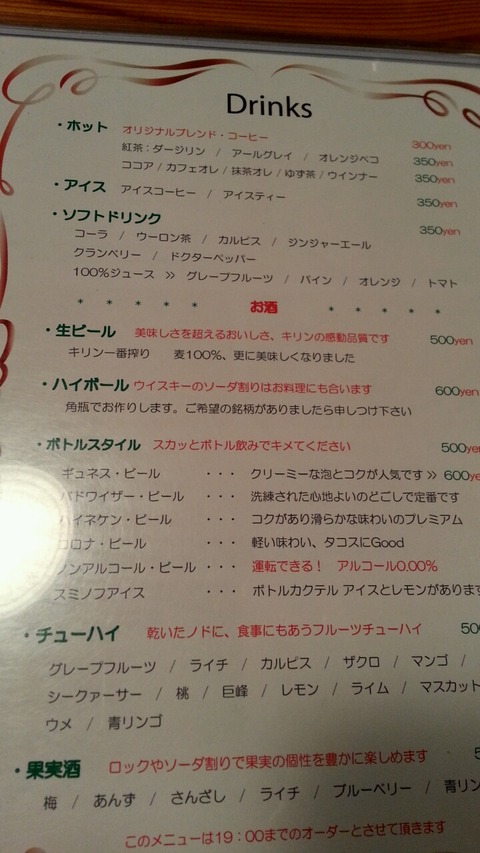 Drinks
・ホット オリジナルブレンド・コーヒー 300yen
紅茶：ダージリン / アールグレイ / オレンジペコ 350yen
ココア / カフェオレ / 抹茶オレ / ゆず茶 / ウインナー 350yen
・アイス アイスコーヒー / アイスティー 350yen
・ソフトドリンク 350yen
コーラ / ウーロン茶 / カルピス / ジンジャーエール
クランベリー / ドクターペッパー
100%ジュース >> グレープフルーツ / パイン / オレンジ / トマト
＊ ＊ ＊ ＊ ＊ お酒 ＊ ＊ ＊ ＊ ＊
・生ビール 美味しさを超えるおいしさ、キリンの感動品質です 500yen
キリン一番搾り 麦100%、更に美味しくなりました
・ハイボール ウイスキーのソーダ割りはお料理にも合います 600yen
角瓶でお作りします。ご希望の銘柄がありましたら申しつけ下さい
・ボトルスタイル スカッとボトル飲みでキメてください 500ye
ギネス・ビール ・・・ クリーミーな泡とコクが人気です >> 600ye
バドワイザー・ビール ・・・ 洗練された心地よいのどごしで定番です
ハイネケン・ビール ・・・ コクがあり滑らかな味わいのプレミアム
コロナ・ビール ・・・ 軽い味わい、タコスにGood
ノンアルコール・ビール ・・・ 運転できる！ アルコール0.00%
スミノフアイス ・・・ ボトルカクテル アイスとレモンがあります
・チューハイ 乾いたノドに、食事にもあうフルーツチューハイ
グレープフルーツ / ライチ / カルピス / ザクロ / マンゴ /
シークァーサー / 桃 / 巨峰 / レモン / ライム / マスカット
ウメ / 青リンゴ
・果実酒 ロックやソーダ割りで果実の個性を豊かに楽しめます
梅 / あんず / さんざし / ライチ / ブルーベリー / 青リン
このメニューは19：00までのオーダーとさせて頂きます